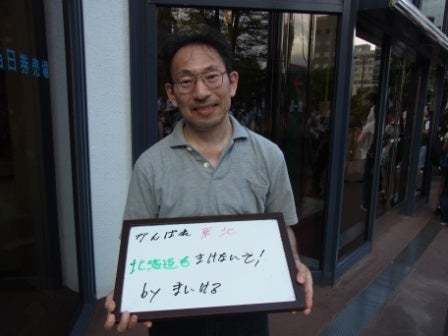 当日券売場
がんばれ 東北
北海道も まけないぞ!
by まいける